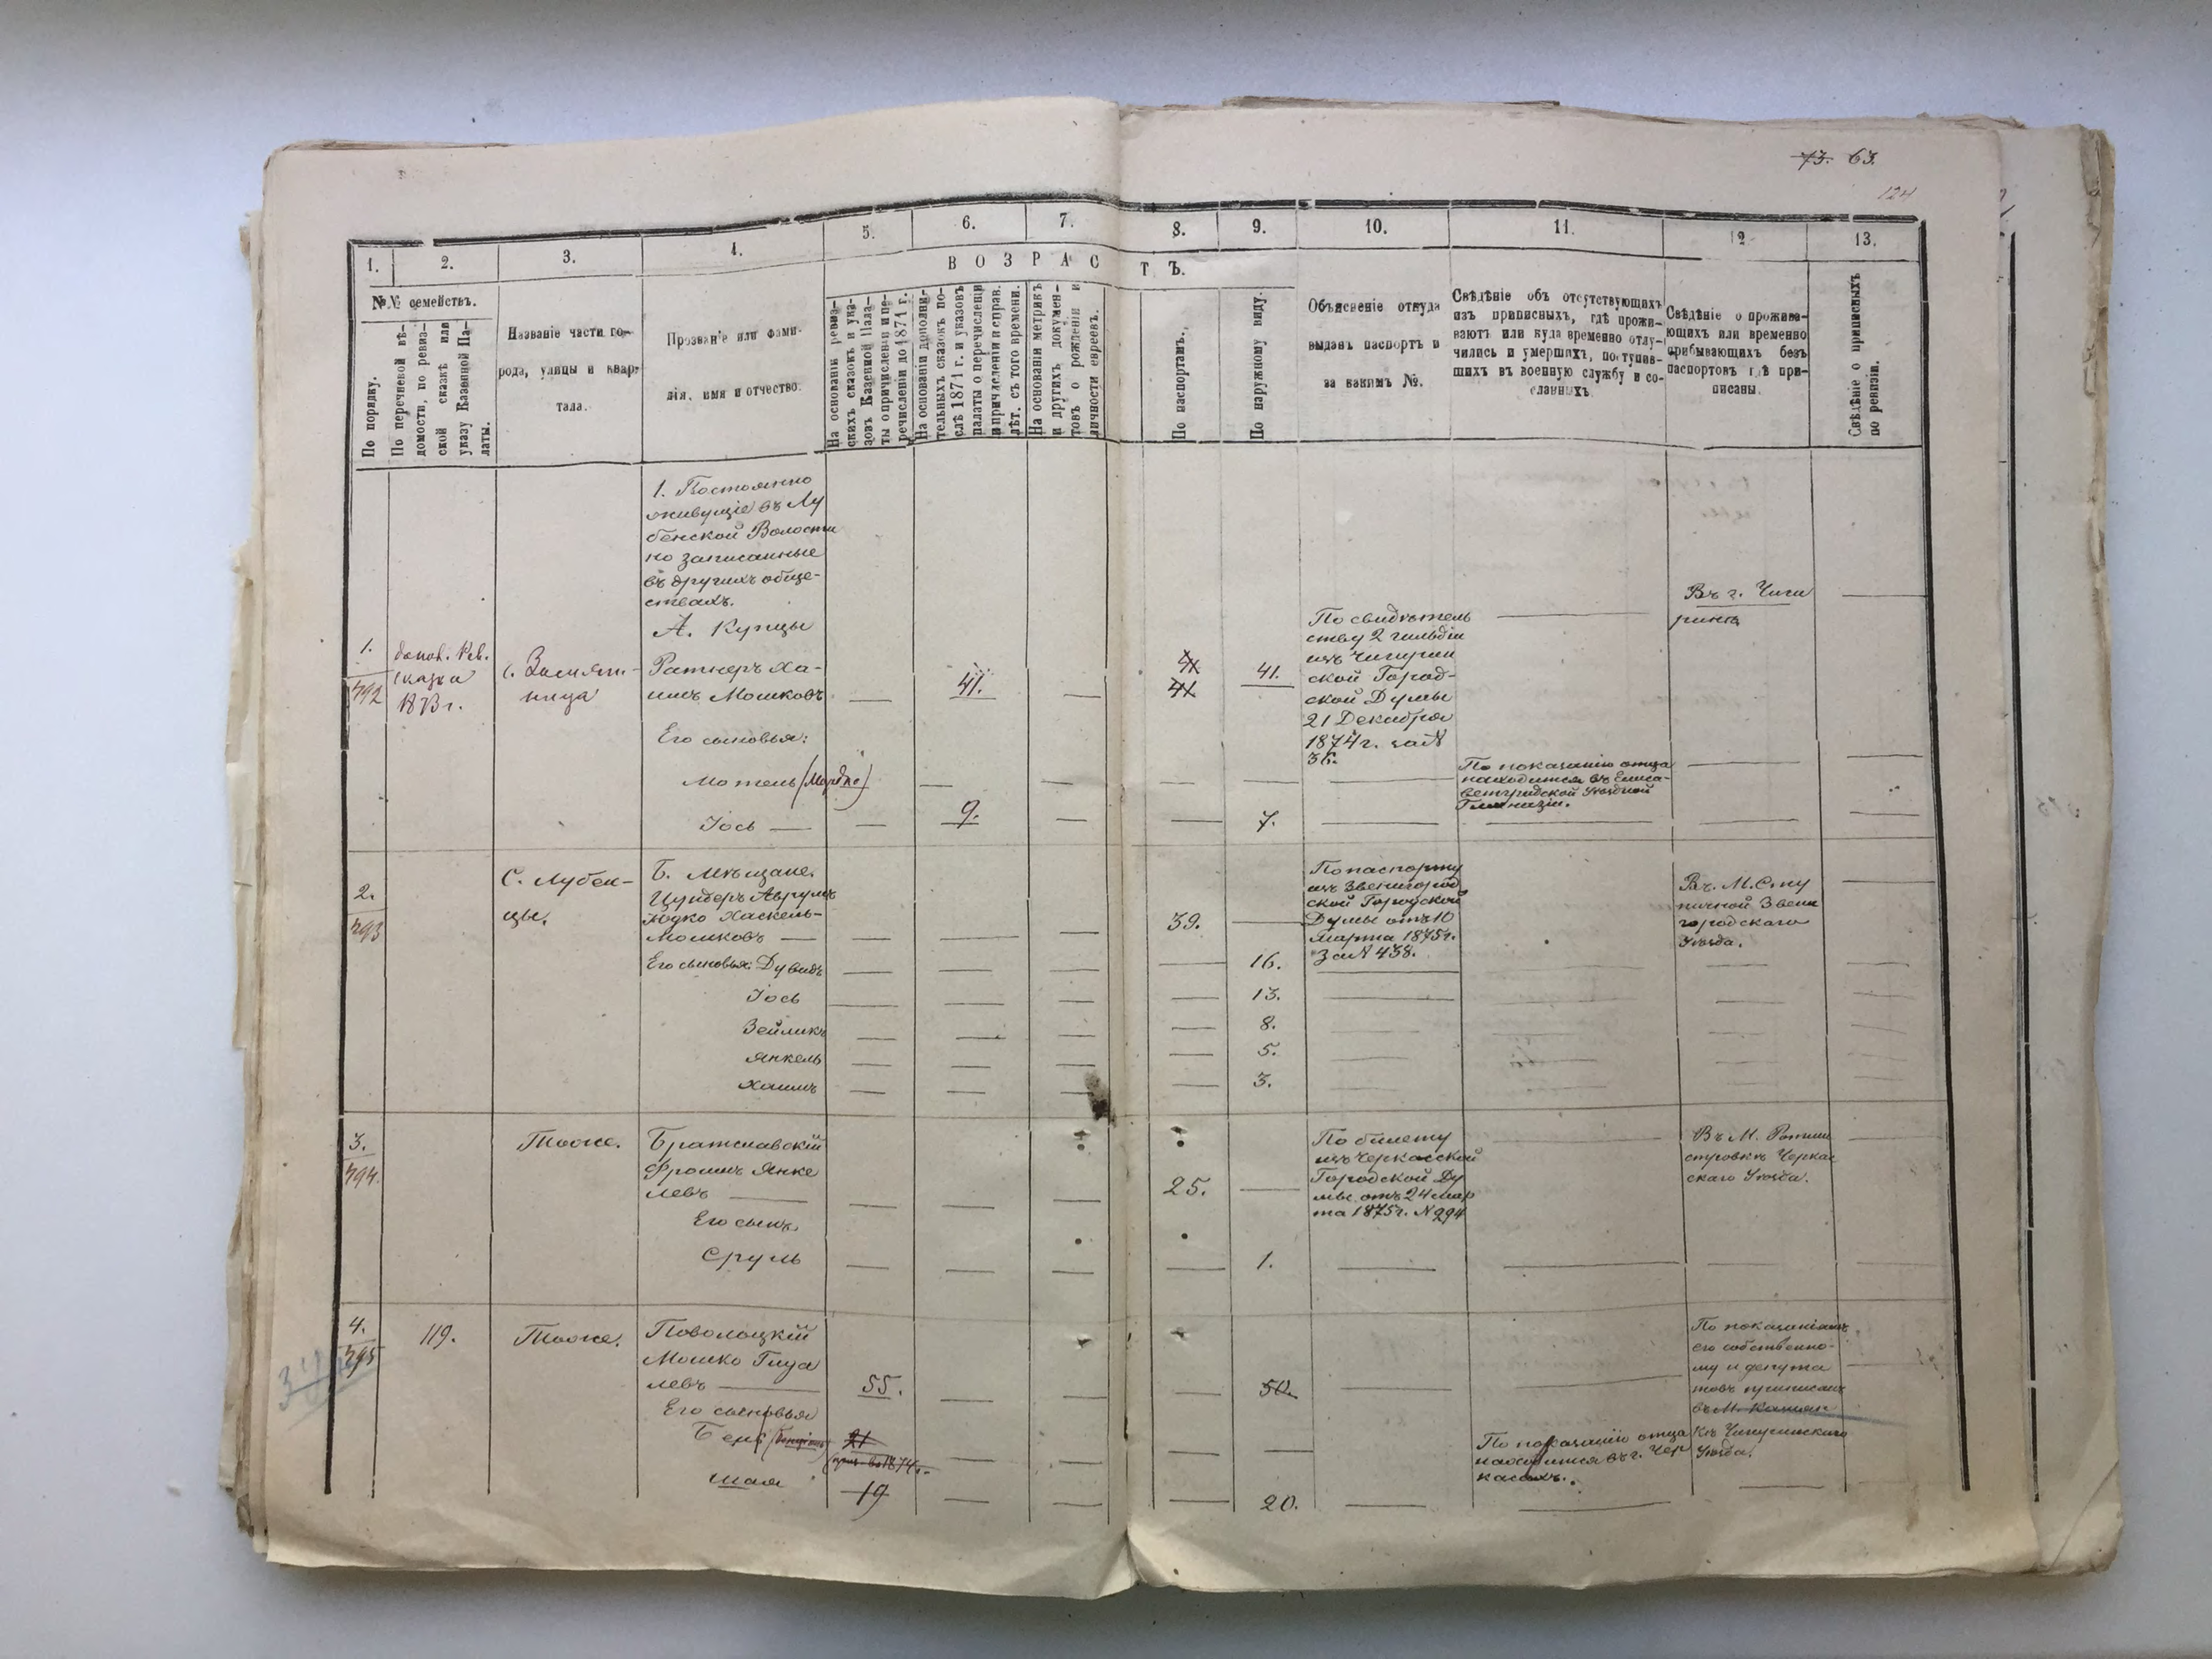 73. 63.
124
1. 2. 3. 4. 5. 6. 7. 8. 9. 10. 11. 12. 13.
ВОЗРАСТЪ.
№№ семействъ.
По порядку.
По перечневой вѣ-
домости, по ревиз-
ской сказкѣ или
указу Казенной Па-
латы.
Названіе части го-
рода, улицы и квар-
тала.
Прозваніе или фами-
лія, имя и отчество.
На основаніи ревиз-
скихъ сказокъ и ука-
зовъ Казенной Пала-
ты о причисленіи и пе-
речисленіи до 1871 г.
На основаніи дополни-
тельныхъ сказокъ по-
слѣ 1871 г. и указовъ
палаты о перечисленіи
и причисленіи и справ.
лѣт. съ того времени.
На основаніи метрикъ
и другихъ докумен-
товъ о рожденіи и
личности евреевъ.
По паспортамъ.
По наружному виду.
Объясненіе откуда
выданъ паспортъ и
за какимъ №.
Свѣдѣніе объ отсутствующихъ
изъ приписныхъ, гдѣ прожи-
ваютъ или куда временно отлу-
чились и умершихъ, поступив-
шихъ въ военную службу и со-
сланныхъ.
Свѣдѣніе о прожива-
ющихъ или временно
прибывающихъ безъ
паспортовъ гдѣ при-
писаны.
Свѣдѣніе о приписныхъ
по ревизіи.
1. Постоянно
живущіе въ Лу
бенской Волости
но записанные
въ другихъ обще-
ствахъ.
А. Купцы
1.
792
допол. Рев.
сказка
1873 г.
Ратнеръ Ха-
имъ Мошковъ
41.
41
41
41.
По свидѣтель
ству 2 гильдіи
изъ Чигирин
ской Город-
ской Думы
21 Декабря
1874 г. за №
36.
Въ г. Чиги
ринѣ
Его сыновья:
Мотель (Мордко)
По показанію отца
находится въ Елиса-
ветградской Уѣздной
Гимназіи.
Іось
9.
7.
2.
793
С. Лубен-
цы.
Б. Мѣщане.
Цундеръ Аврумъ
Юдко Хаскель-
Мошковъ
39.
По паспорту
изъ Звенигород
ской Городской
Думы отъ 10
Марта 1875 г.
За № 438.
Звени
городскаго
Уѣзда.
Его сыновья: Дувидъ
16.
Іось
13.
Зейликъ
8.
Янкель
5.
Хаимъ
3.
3.
794.
Тоже.
Братславскій
Фроимъ Янке
левъ
25.
По билету
изъ Черкасской
Городской Ду
мы отъ 24 Мар
та 1875 г. № 294
Въ М. Ротми
стровкѣ Черкас
скаго Уѣзда.
Его сынъ
Сруль
1.
4.
795
119.
Тоже.
Поволоцкій
Мошко
левъ
55.
50.
По показаніямъ
его собственно-
му и депута
товъ приписанъ
въ М. Камян
кѣ Чигиринскаго
Уѣзда.
Его сыновья
21
По показанію отца
находится въ г. Чер
касахъ.
Шая
19
20.